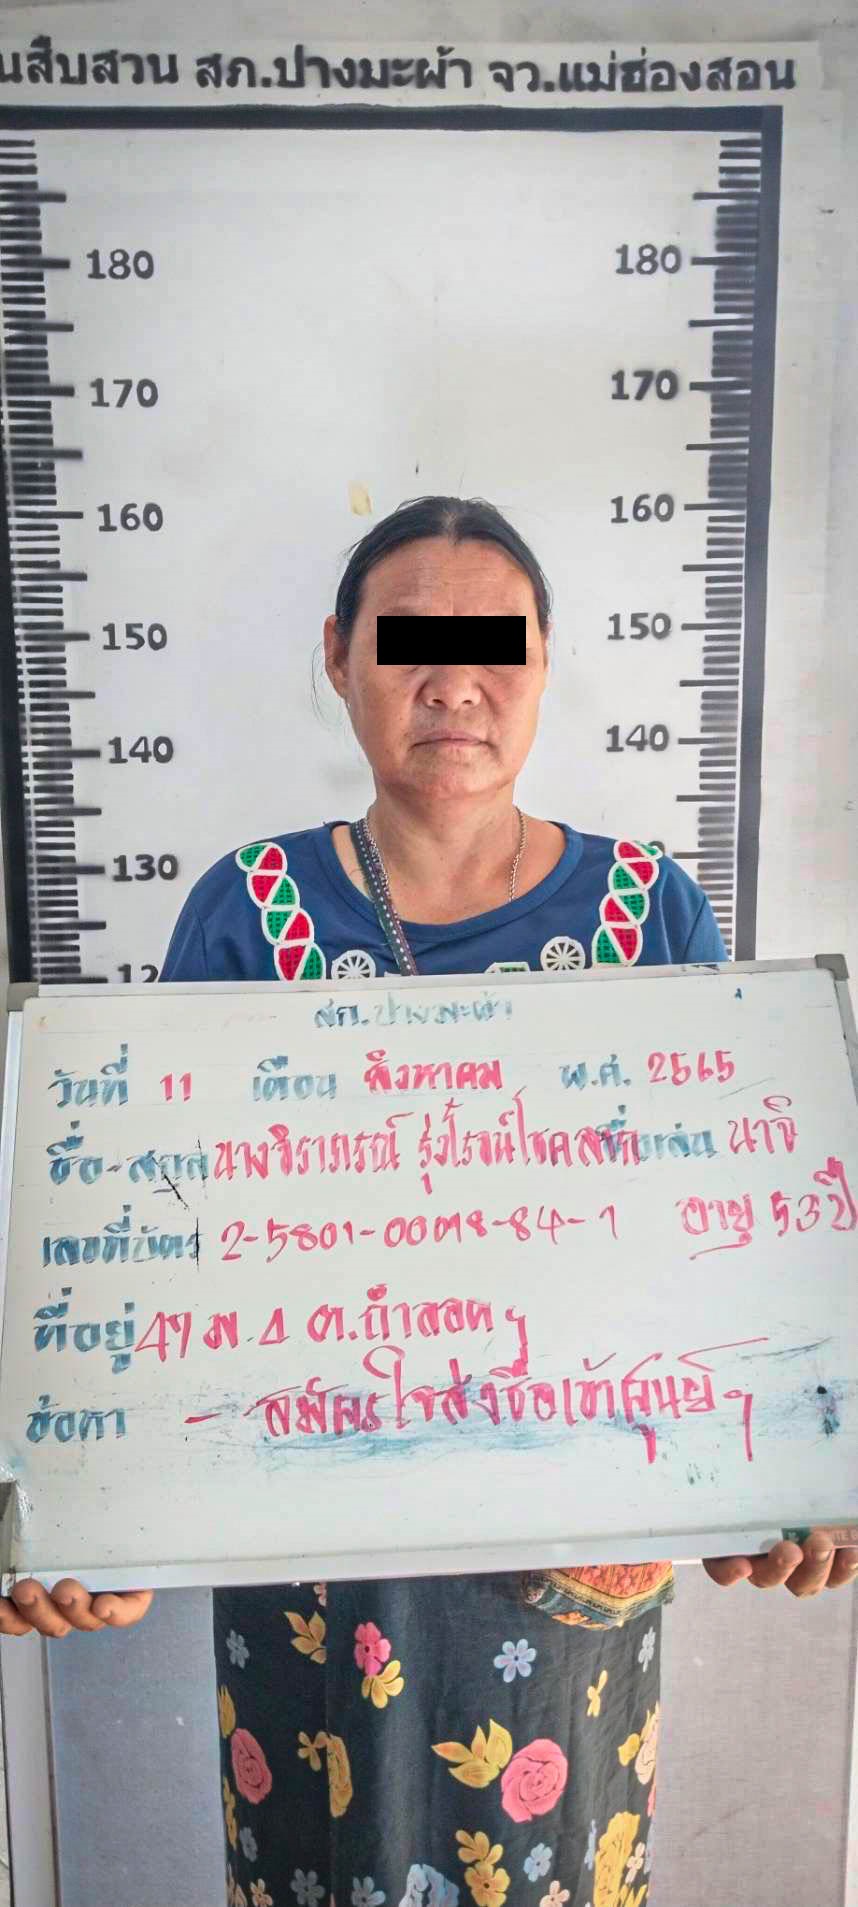 นสืบสวน สภ.ปางมะผ้า จว.แม่ฮ่องสอน
180 180
170 170
160 160
150 150
140 140
130
12
สภ.ปางมะผ้า
วันที่ 11 เดือน สิงหาคม พ.ศ. 2565
ชื่อ-สกุล นางจิราภรณ์ รุ่งโรจน์โชค ชื่อเล่น นาจิ
เลขที่บัตร 2-5801-00018-84-1 อายุ 53 ปี
ที่อยู่ 47 ม.4 ต.ถ้ำลอด ฯ
ข้อหา - สมัครใจส่งชื่อเข้าศูนย์ ฯ